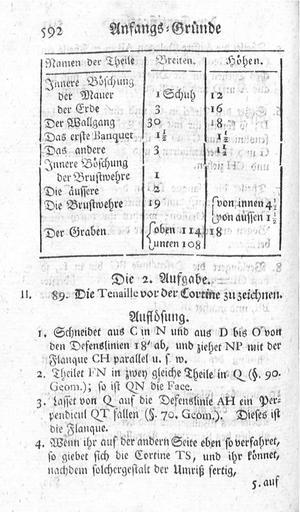 592 Anfangs-Gründe
Namen der Theile Breiten. Höhen.
Innere Böschung
der Mauer 1 Schuh 12
der Erde 3 16
Der Wallgang 30 18
Das erste Banquet 1½ 1½
Das andere 3 1½
Innere Böschung
der Brustwehre 1
Die äussere 2
Die Brustwehre 19 {von innen 4½
von aussen 1½
Der Graben {oben 114 18
unten 108
Die 2. Aufgabe.
II. 89. Die Tenaille vor der Cortine zu zeichnen.
Auflösung.
1. Schneidet aus C in N und aus D bis O von
den Defenslinien 18' ab, und ziehet NP mit der
Flanque CH parallel u. s. w.
2. Theilet FN in zwey gleiche Theile in Q (§. 90.
Geom.); so ist QN die Face.
3. Lasset von Q auf die Defenslinie AH ein Per-
pendicul QT fallen (§. 70. Geom.). Dieses ist
die Flanque.
4. Wenn ihr auf der andern Seite eben so verfahret,
so giebet sich die Cortine TS, und ihr könnet,
nachdem solchergestalt der Umriß fertig,
5. auf